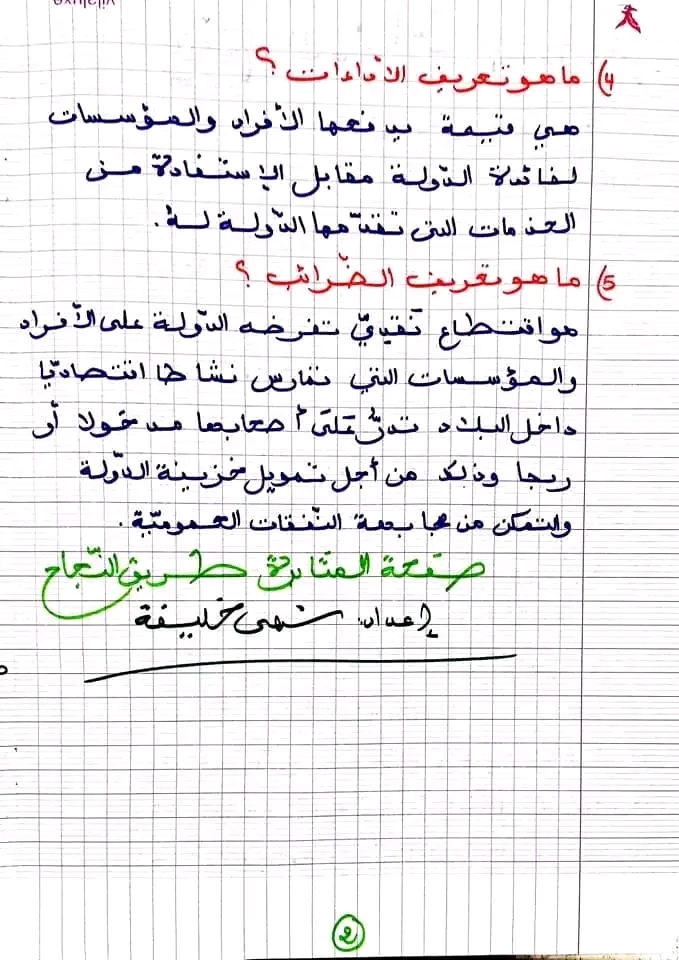 4) ما هو تعريف الأداءات ؟
هي قيمة يدفعها الأفراد والمؤسسات
لفائدة الدولة مقابل الإستفادة من
الخدمات التي تقدّمها الدّولة له.
5) ما هو تعريف الضّرائب ؟
هو اقتطاع نقديّ تفرضه الدّولة على الأفراد
والمؤسسات التي تمارس نشاطا اقتصاديّا
داخل البلاد تدرّ على أصحابها مدخولا أو
ربحا وذلك من أجل تمويل خزينة الدّولة
والتمكن من مجابهة النّفقات العموميّة.
صفحة المثابرة طريق النّجاح
إعداد: سهى خليفة
2